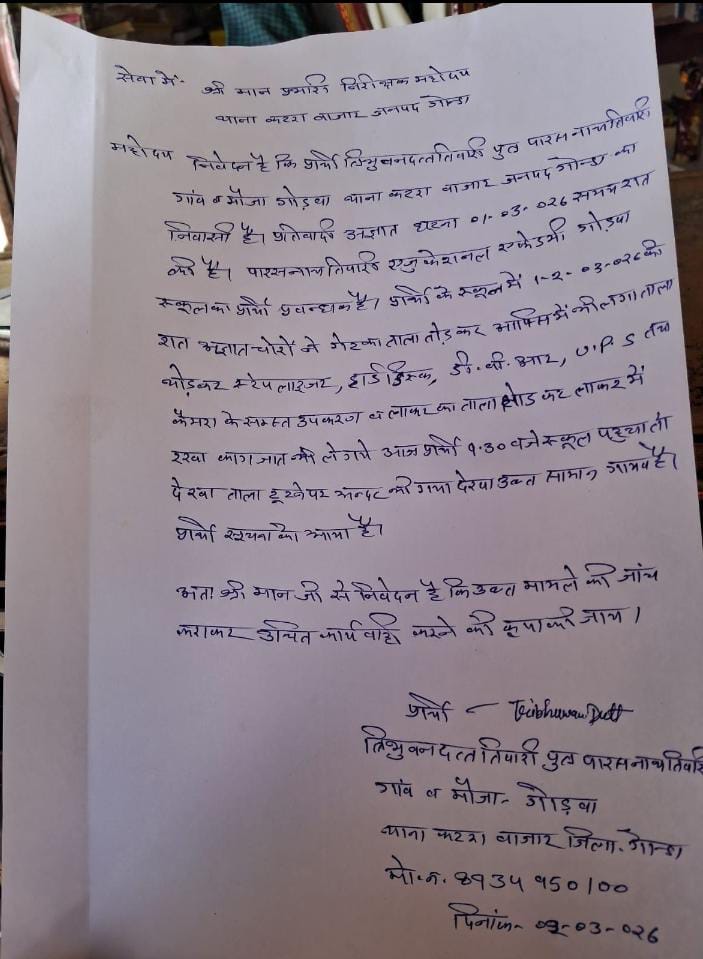 सेवा में- श्री मान प्रभारी निरीक्षक महोदय
थाना कटरा बाजार जनपद गोन्डा
महोदय निवेदन है कि प्रार्थी त्रिभुवनदत्त तिवारी पुत्र पारसनाथ तिवारी
गांव व मौजा गोड़वा थाना कटरा बाजार जनपद गोन्डा का
निवासी है। प्रतिवादी अज्ञात घटना 01-03-026 समय रात
की है। पारसनाथ तिवारी एजुकेशनल एकेडमी गोड़वा
स्कूल का प्रार्थी प्रबन्धक है। प्रार्थी के स्कूल में 1-2-03-026 की
रात अज्ञात चोरों ने गेट का ताला तोड़ कर आफिस में भी लगा ताला
तोड़कर स्टेपलाइजर, हार्ड डिस्क, डी.वी.आर, U.P.S तथा
कैमरा के समस्त उपकरण व लाकर का ताला तोड कर लाकर में
रखा कागजात भी ले गये आज प्रार्थी 9.30 बजे स्कूल पहुचा तो
देखा ताला टूटने पर अन्दर की गया देखा उक्त सामान गायब है।
प्रार्थी सूचना को आया है।
अतः श्री मान जी से निवेदन है कि उक्त मामले की जांच
कराकर उचित कार्यवाही करने की कृपा की जाय।
प्रार्थी - Tribhuwan Dutt
त्रिभुवनदत्त तिवारी पुत्र पारसनाथ तिवारी
गांव व मौजा- गोड़वा
थाना कटरा बाजार जिला- गोन्डा
मो.न. 8934950100
दिनांक- 02-03-026